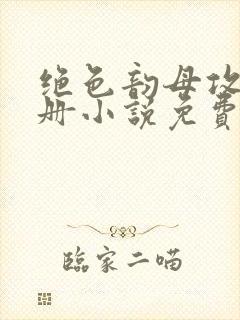 绝色韵母攻
册小说免費
臨家二喵